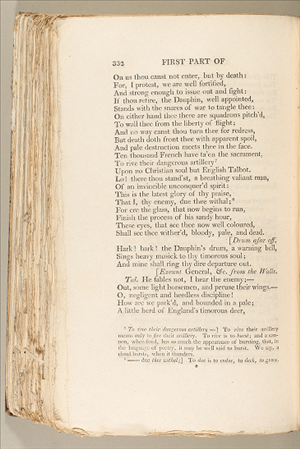 332 FIRST PART OF
On us thou canst not enter, but by death:
For, I protest, we are well fortified,
And strong enough to issue out and fight:
If thou retire, the Dauphin, well appointed,
Stands with the snares of war to tangle thee:
On either hand thee there are squadrons pitch'd,
To wall thee from the liberty of flight;
And no way canst thou turn thee for redress,
But death doth front thee with apparent spoil,
And pale destruction meets thee in the face.
Ten thousand French have ta'en the sacrament,
To rive their dangerous artillery⁷
Upon no Christian soul but English Talbot.
Lo! there thou stand'st, a breathing valiant man,
Of an invincible unconquer'd spirit:
This is the latest glory of thy praise,
That I, thy enemy, due thee withal;⁸
For ere the glass, that now begins to run,
Finish the process of his sandy hour,
These eyes, that see thee now well coloured,
Shall see thee wither'd, bloody, pale, and dead.
[Drum afar off.
Hark! hark! the Dauphin's drum, a warning bell,
Sings heavy musick to thy timorous soul;
And mine shall ring thy dire departure out.
[Exeunt General, &c. from the Walls.
Tal. He fables not, I hear the enemy;—
Out, some light horsemen, and peruse their wings.—
O, negligent and heedless discipline!
How are we park'd, and bounded in a pale;
A little herd of England's timorous deer,
⁷ To rive their dangerous artillery—] To rive their artillery
means only to fire their artillery. To rive is to burst; and a can-
non, when fired, has so much the appearance of bursting, that, in
the language of poetry, it may be well said to burst. We say, a
cloud bursts, when it thunders.
⁸ —— due thee withal;] To due is to endue, to deck, to grace.